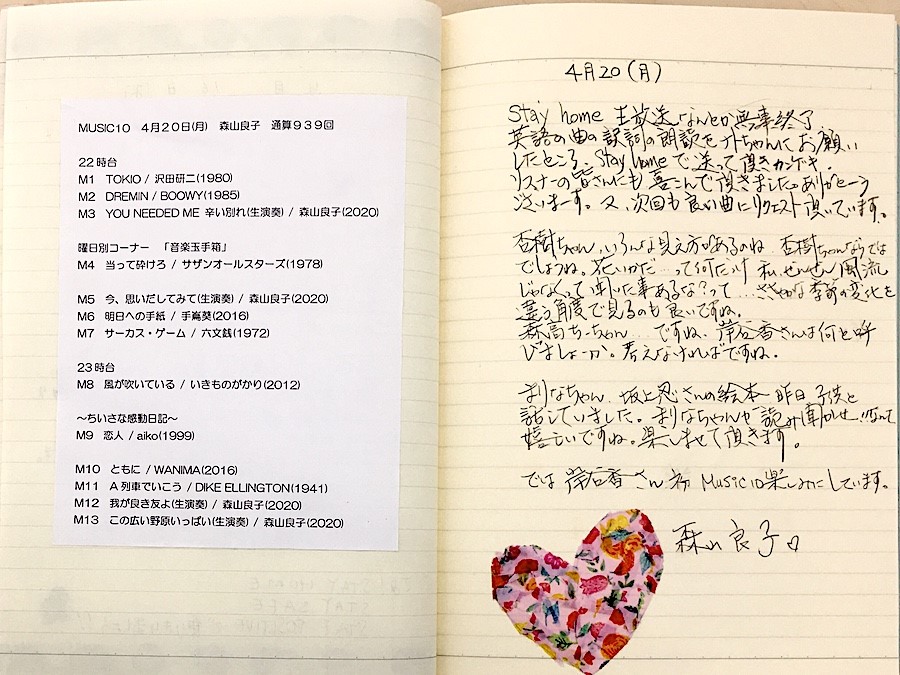 MUSIC10 4月20日(月) 森山良子 通算939回
22時台
M1 TOKIO / 沢田研二(1980)
M2 DREMIN / BOOWY(1985)
M3 YOU NEEDED ME 辛い別れ(生演奏) / 森山良子(2020)
曜日別コーナー 「音楽玉手箱」
M4 当って砕けろ / サザンオールスターズ(1978)
M5 今、思いだしてみて(生演奏) / 森山良子(2020)
M6 明日への手紙 / 手嶌葵(2016)
M7 サーカス・ゲーム / 六文銭(1972)
23時台
M8 風が吹いている / いきものがかり(2012)
～ちいさな感動日記～
M9 恋人 / aiko(1999)
M10 ともに / WANIMA(2016)
M11 A列車でいこう / DIKE ELLINGTON(1941)
M12 我が良き友よ(生演奏) / 森山良子(2020)
M13 この広い野原いっぱい(生演奏) / 森山良子(2020)
4月20(月)
Stay home 生放送なんとか無事終了。
英語の曲の訳詞の朗読を ちゃんにお願い
したところ、Stay homeで送って頂き
リスナーの皆さんにも喜こんで頂きました。ありがとーう
ございまーす。又、次回も良い曲にリクエスト頂いています。
杏樹ちゃん、いろんな見え方があるのね。杏樹ちゃんならでは
でしょうね。花いかだ…って何だっけ 私、ぜんぜん風流
じゃなくって聞いた事あるな?って…ささやかな季節の変化を
違う角度で見るのも良いですね。
森高ちーちゃん…ですね、岸谷香さんは何と呼
びましょーか。考えなければですね。
まりなちゃん、坂上忍さんの絵本 昨日子供と
話していました。まりなちゃんや読み聞かせ…なんて
嬉しいですね。楽しませて頂きます。
では 岸谷香さん 初 Music10 楽しみにしています。
森山良子